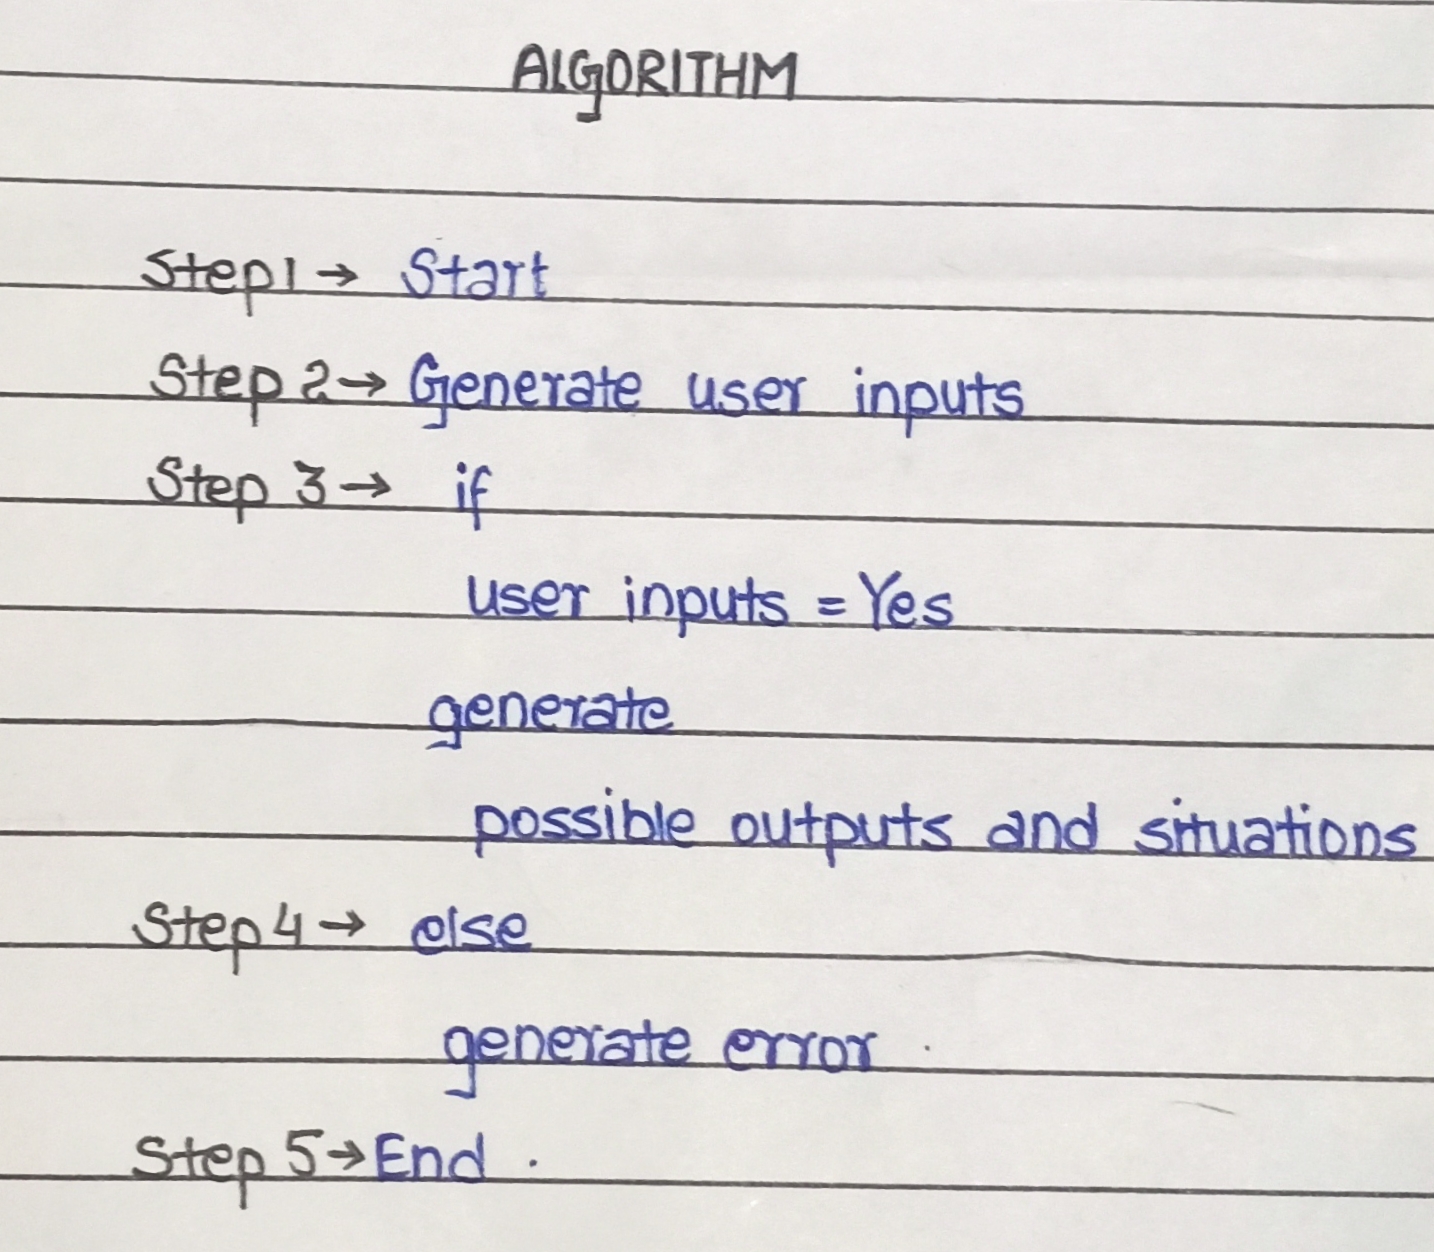 ALGORITHM
Step1 → Start
Step 2 → Generate user inputs
Step 3 → if
user inputs = Yes
generate
possible outputs and situations
Step 4 → else
generate error .
Step 5 → End .